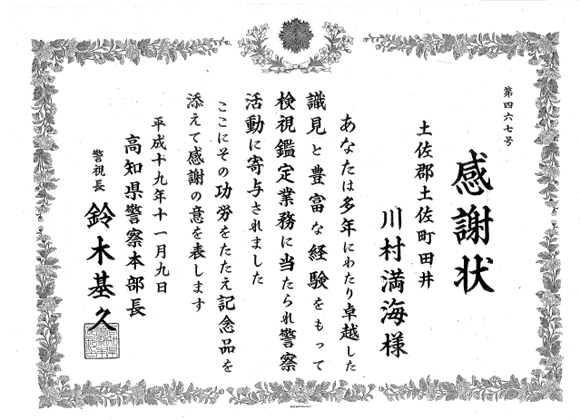 第四六七号
感謝状
土佐郡土佐町田井
川村満海様
あなたは多年にわたり卓越した
識見と豊富な経験をもって
検視鑑定業務に当たられ警察
活動に寄与されました
ここにその功労をたたえ記念品を
添えて感謝の意を表します
平成十九年十一月九日
高知県警察本部長
警視長 鈴木基久